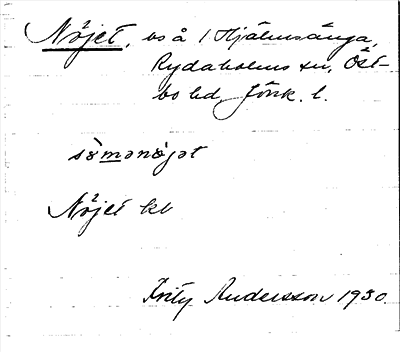 Nöjet, bs å 1 Hjälmsänga,
Rydaholms sn, Öst-
bo hd, Jönk. l.
sö̀mənöjət
Nöjet kb
Fritz Andersson 1930.